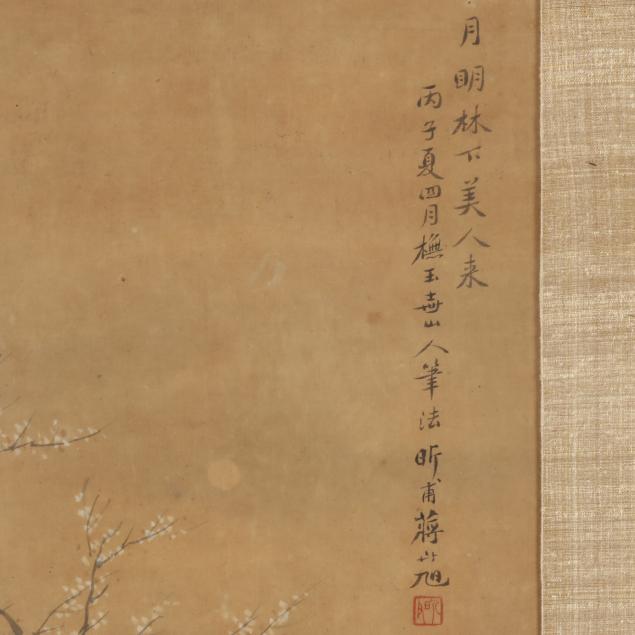 月明林下美人来
丙子夏四月橅玉壶山人筆法昕甫蔣山旭